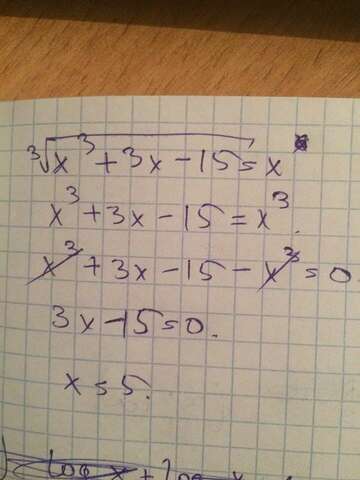 ∛(x³+3x-15) = x
x³+3x-15=x³.
x³+3x-15-x³=0
3x-15=0.
x=5.